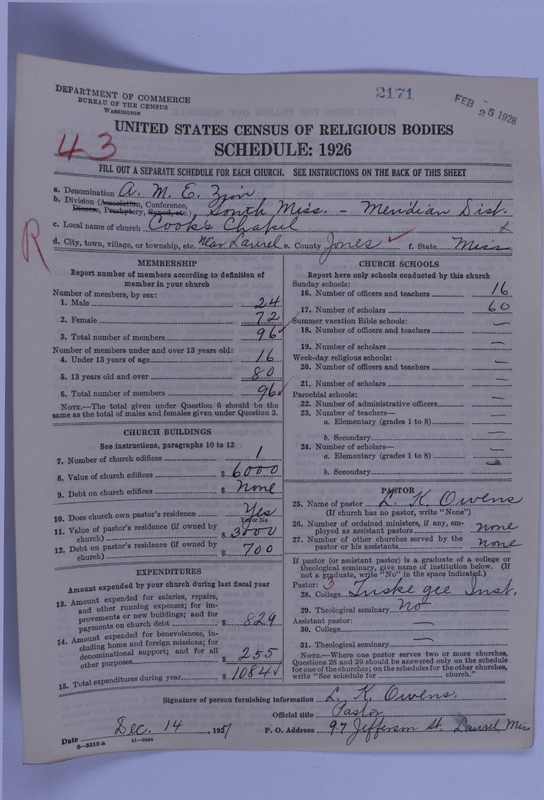 DEPARTMENT OF COMMERCE
BUREAU OF THE CENSUS
WASHINGTON
2171
FEB 25 1928
43
UNITED STATES CENSUS OF RELIGIOUS BODIES
SCHEDULE: 1926
FILL OUT A SEPARATE SCHEDULE FOR EACH CHURCH. SEE INSTRUCTIONS ON THE BACK OF THIS SHEET
R
a. Denomination A. M. E. Zion
b. Division (Association, Conference, Diocese, Presbytery, Synod, etc.) South Miss. - Meridian Dist.
c. Local name of church Cooks Chapel x
d. City, town, village, or township, etc. Near Laurel e. County Jones f. State Miss
MEMBERSHIP
Report number of members according to definition of
member in your church
Number of members, by sex:
1. Male 24
2. Female 72
3. Total number of members 96
Number of members under and over 13 years old:
4. Under 13 years of age 16
5. 13 years old and over 80
6. Total number of members 96
NOTE.—The total given under Question 6 should be the
same as the total of males and females given under Question 3.
CHURCH BUILDINGS
See instructions, paragraphs 10 to 12
7. Number of church edifices 1
8. Value of church edifices $ 6000
9. Debt on church edifices $ None
10. Does church own pastor's residence? Yes
Yes or No
11. Value of pastor's residence (if owned by
church) $ 3000
12. Debt on pastor's residence (if owned by
church) $ 700
EXPENDITURES
Amount expended by your church during last fiscal year
13. Amount expended for salaries, repairs,
and other running expenses; for im-
provements or new buildings; and for
payments on church debt $ 829
14. Amount expended for benevolences, in-
cluding home and foreign missions; for
denominational support; and for all
other purposes $ 255
15. Total expenditures during year $ 1084
CHURCH SCHOOLS
Report here only schools conducted by this church
Sunday schools:
16. Number of officers and teachers 16
17. Number of scholars 60
Summer vacation Bible schools:
18. Number of officers and teachers —
19. Number of scholars —
Week-day religious schools:
20. Number of officers and teachers —
21. Number of scholars —
Parochial schools:
22. Number of administrative officers —
23. Number of teachers—
a. Elementary (grades 1 to 8) —
b. Secondary —
24. Number of scholars—
a. Elementary (grades 1 to 8) —
b. Secondary —
PASTOR
25. Name of pastor L. K. Owens
(If church has no pastor, write "None")
26. Number of ordained ministers, if any, em-
ployed as assistant pastors none
27. Number of other churches served by the
pastor or his assistants None
If pastor (or assistant pastor) is a graduate of a college or
theological seminary, give name of institution below. (If
not a graduate, write "No" in the space indicated.)
Pastor: 3
28. College Tuskegee Inst.
29. Theological seminary No
Assistant pastor:
30. College —
31. Theological seminary —
NOTE.—Where one pastor serves two or more churches,
Questions 28 and 29 should be answered only on the schedule
for one of the churches; on the schedules for the other churches,
write "See schedule for church."
Signature of person furnishing information L. K. Owens.
Official title Pastor
Date Dec. 14, 1927 P. O. Address 97 Jefferson St. Laurel, Miss
8-5318a